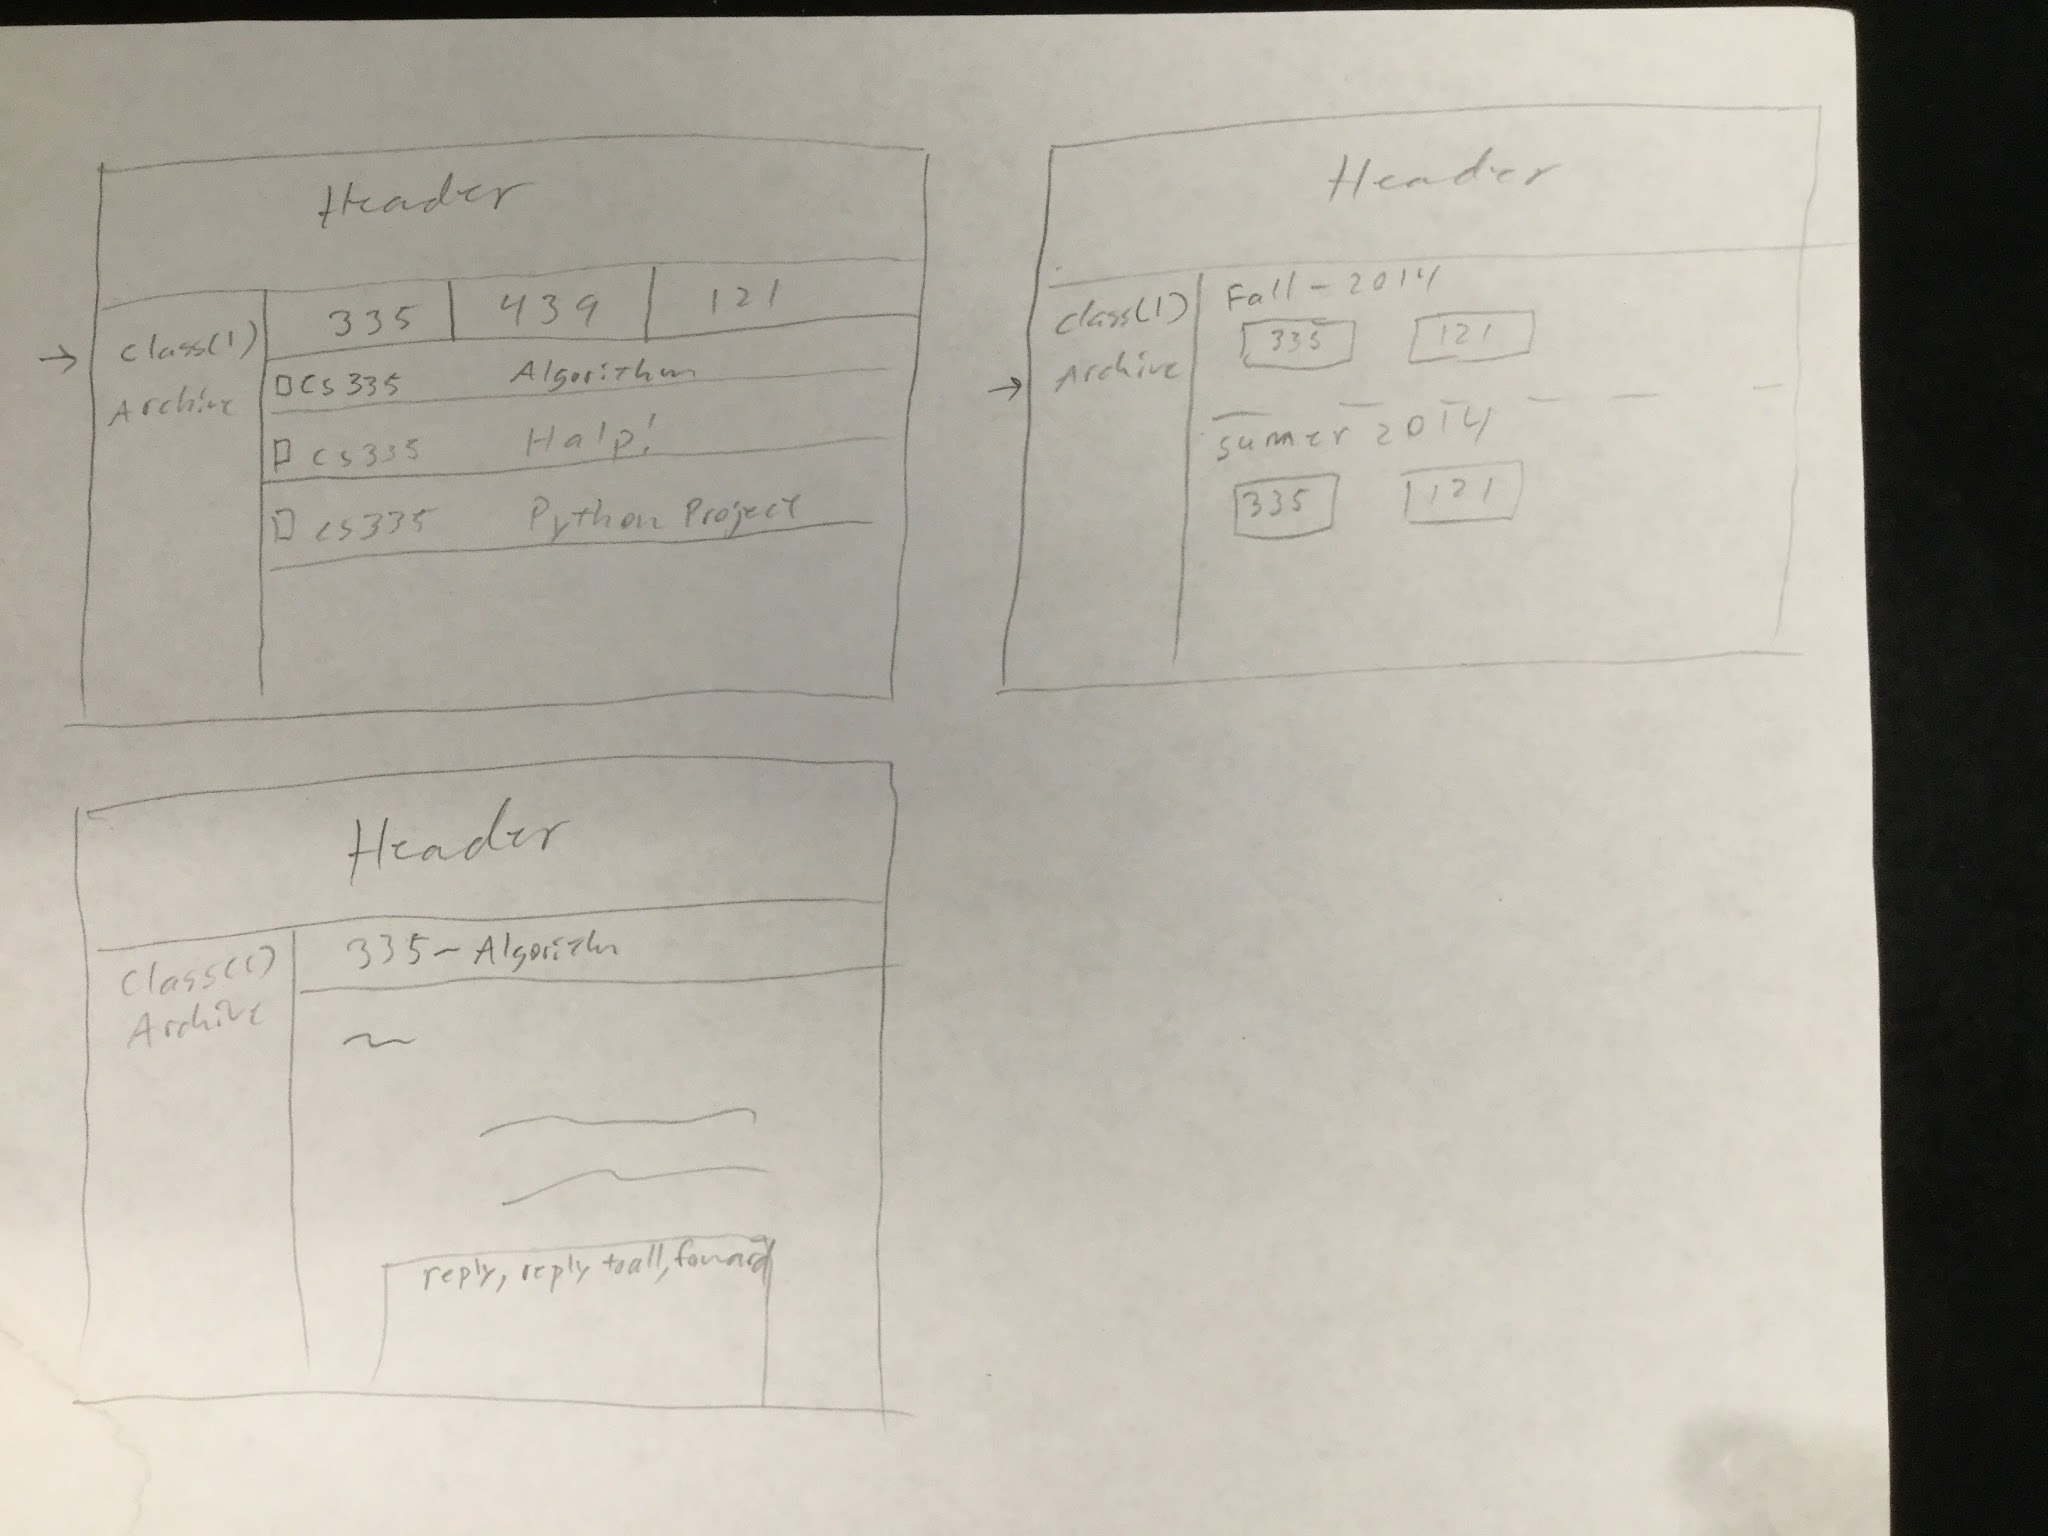 Header
335 439 121
class(1)
Archive
CS335 Algorithm
cs335 Halp!
cs335 Python Project
Header
class(1)
Archive
Fall - 2014
335 121
sumer 2014
335 121
Header
class(1)
Archive
335 - Algorithm
reply, reply to all, forward